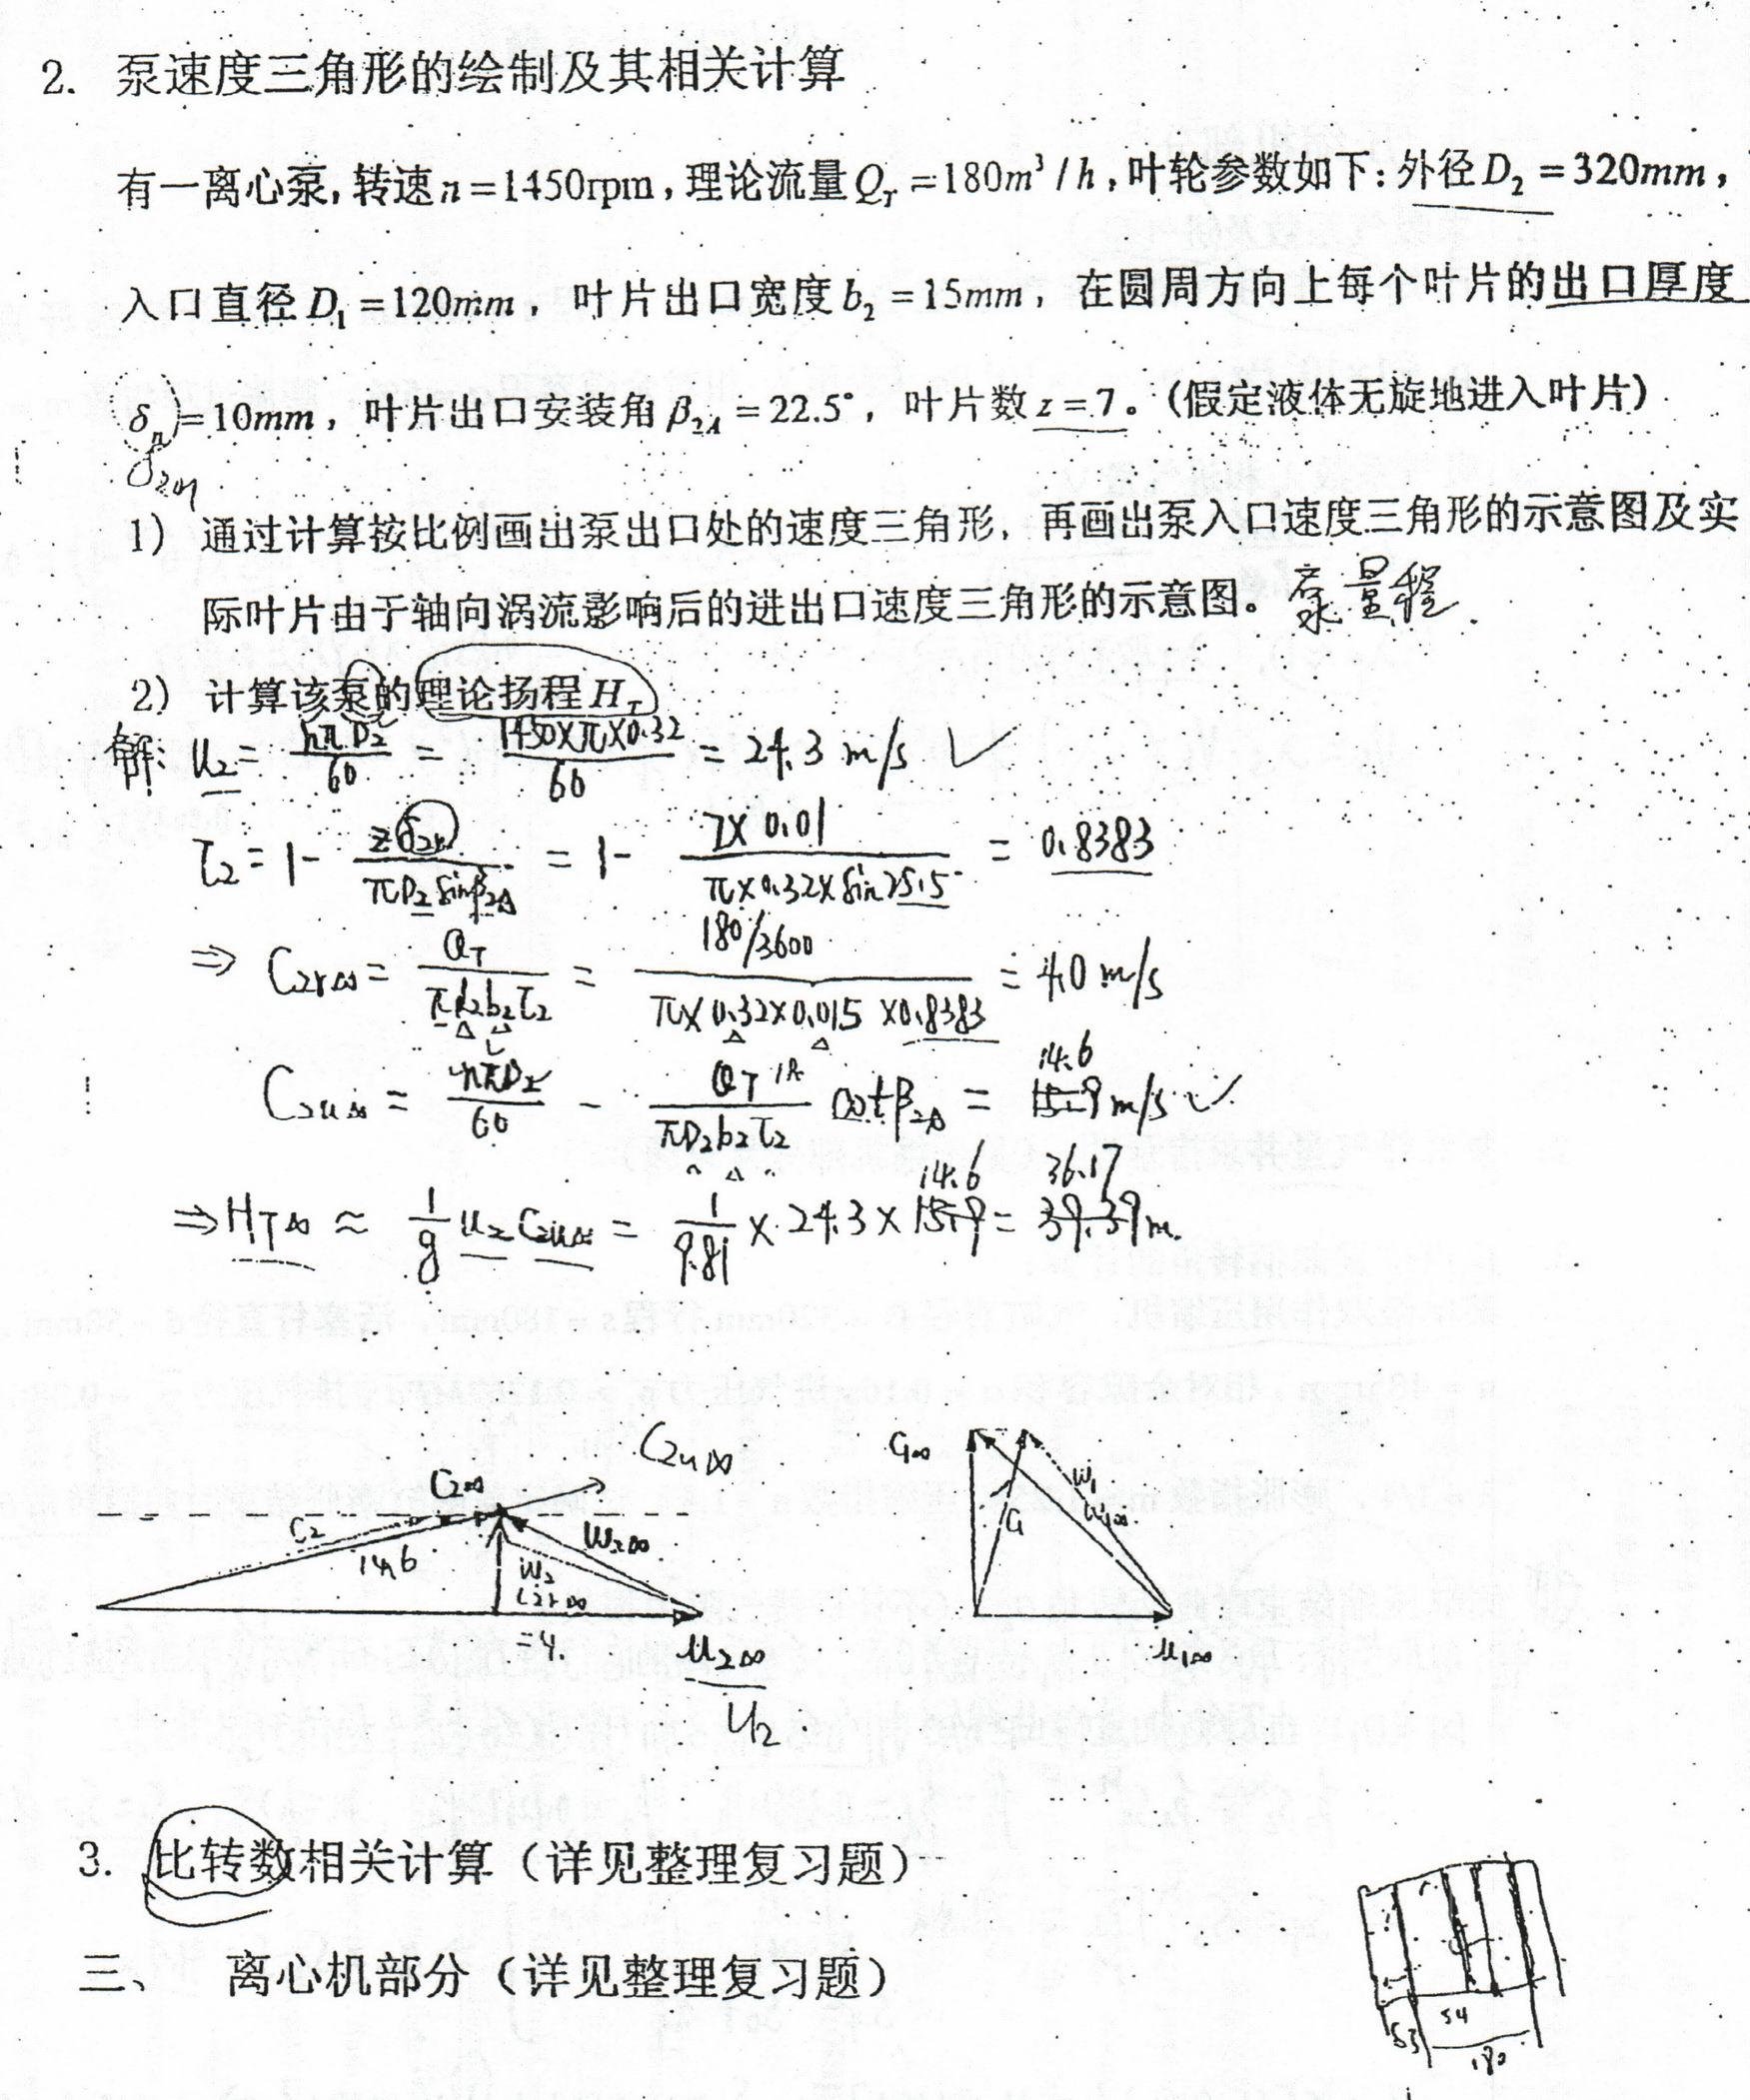 2. 泵速度三角形的绘制及其相关计算
有一离心泵,转速n=1450rpm,理论流量Q_T=180m³/h,叶轮参数如下:外径D₂=320mm,
入口直径D₁=120mm,叶片出口宽度b₂=15mm,在圆周方向上每个叶片的出口厚度
δ_n=10mm,叶片出口安装角β_2A=22.5°,叶片数z=7。(假定液体无旋地进入叶片)
1) 通过计算按比例画出泵出口处的速度三角形,再画出泵入口速度三角形的示意图及实
际叶片由于轴向涡流影响后的进出口速度三角形的示意图。
2) 计算该泵的理论扬程H_T
解: u₂= nπD₂/60 = 1450×π×0.32/60 = 24.3 m/s ✓
τ₂=1- zδ₂/πD₂sinβ_2A = 1- 7×0.01/π×0.32×sin25.5° = 0.8383
⇒ C₂r∞= Q_T/πd₂b₂τ₂ = 180/3600/π×0.32×0.015×0.8383 = 4.0 m/s
14.6
C₂u∞ = nπD₂/60 - Q_T/πD₂b₂τ₂ cotβ_2A = 15.9 m/s ✓
14.6 36.17
⇒ H_T∞ ≈ 1/g u₂C₂u∞ = 1/9.81 × 24.3 × 15.9 = 39.39m.
C₂u∞
C₂∞
C₂
14.6
W₂∞
W₂
C₂r∞
=4.
u₂∞
u₂
C₁∞
W₁
W₁∞
C₁
u₁∞
3. 比转数相关计算(详见整理复习题)
三、 离心机部分(详见整理复习题)
54
53
180